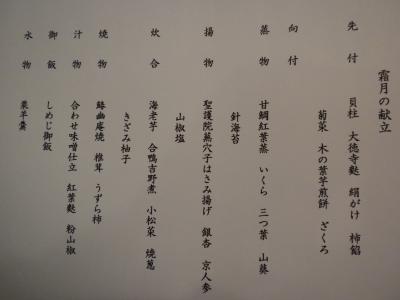 霜月の献立
先付 貝柱 大徳寺麩 絹がけ 柿餡
菊菜 木の葉芋煎餅 ざくろ
向付
蒸物 甘鯛紅葉蒸 いくら 三つ葉 山葵
針海苔
揚物 聖護院蕪穴子はさみ揚げ 銀杏 京人参
山椒塩
炊合 海老芋 合鴨吉野煮 小松菜 焼葱
きざみ柚子
焼物 鰆幽庵焼 椎茸 うずら柿
汁物 合わせ味噌仕立 紅葉麩 粉山椒
御飯 しめじ御飯
水物 栗羊羹